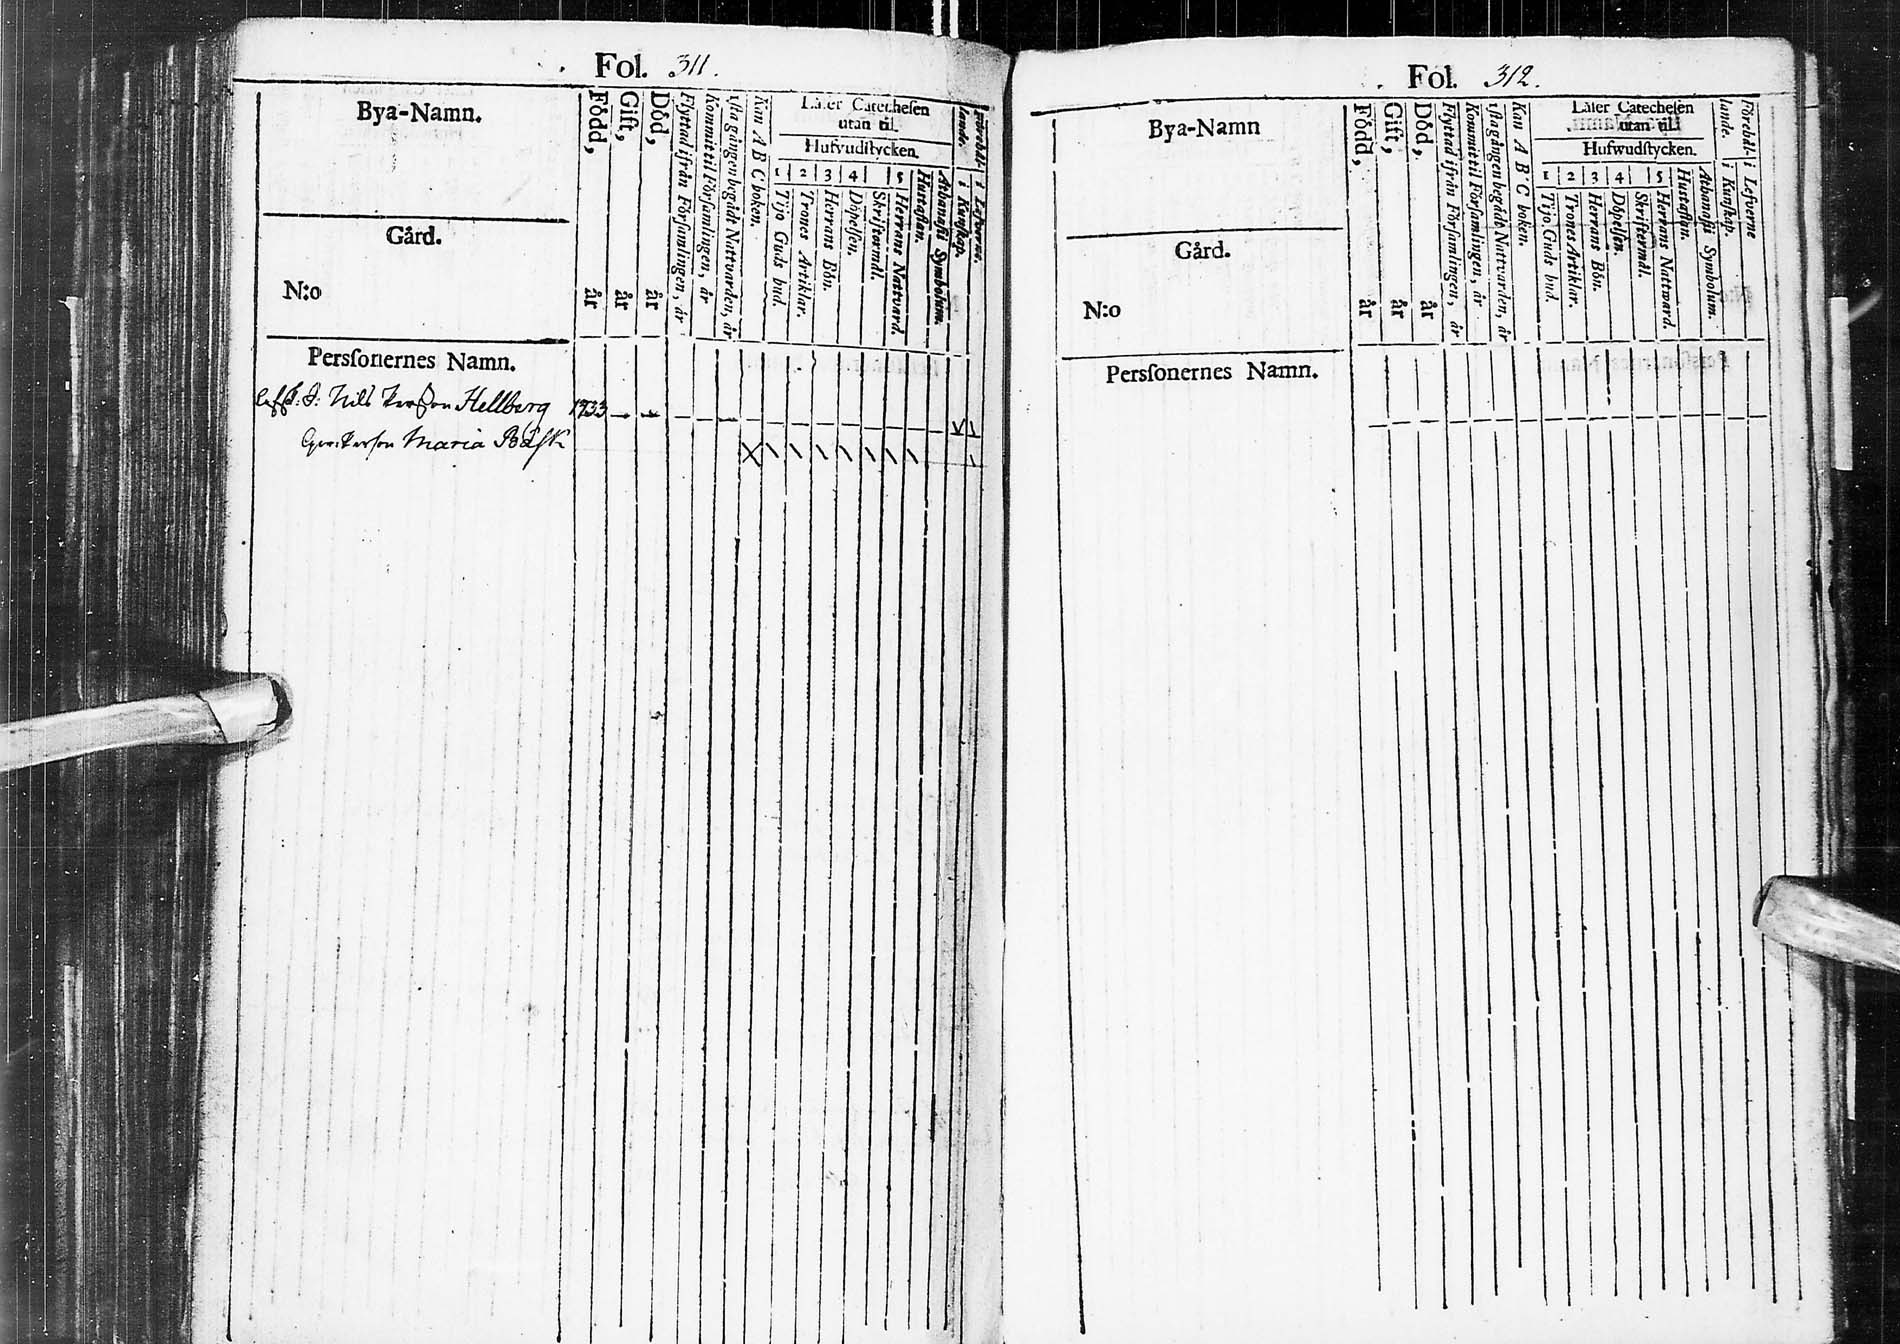 Fol. 311.
Bya-Namn.
Gård.
N:o
Perſonernes Namn.
Född, år
Gift, år
Död, år
Flyttad ifrån Förſamlingen, år
Kommit til Förſamlingen, år
1ſta gången begådt Nattvarden, år
Kan A B C boken.
Läſer Catecheſen
utan til.
Hufvudſtycken.
1 2 3 4 5
Tijo Guds bud.
Trones Artiklar.
Herrans Bön.
Döpelſen.
Skriftermål.
Herrans Nattvard.
Huſtaflan.
Athanaſii Symbolum.
Förehål-
lande.
i Kunſkap.
i Lefverne
Nils Hellberg 1733
Maria
Fol. 312.
Bya-Namn
Gård.
N:o
Perſonernes Namn.
Född, år
Gift, år
Död, år
Flyttad ifrån Förſamlingen, år
Kommit til Förſamlingen, år
1ſta gången begådt Nattvarden, år
Kan A B C boken.
Läſer Catecheſen
utan til.
Hufwudſtycken.
1 2 3 4 5
Tijo Guds bud.
Trones Artiklar.
Herrans Bön.
Döpelſen.
Skriftermål.
Herrans Nattward.
Huſtaflan.
Athanaſii Symbolum.
Förehål-
lande.
i Kunſkap.
i Lefverne